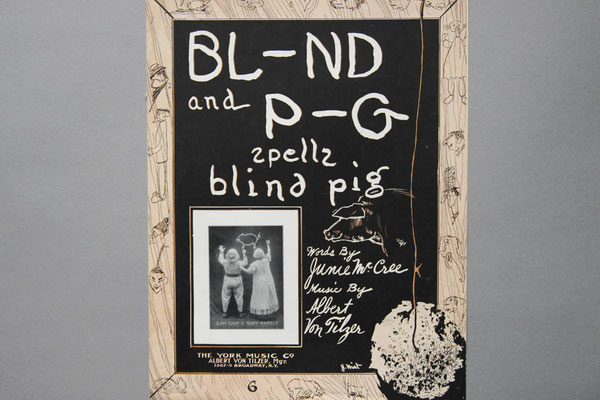 BL-ND
and P-G
spells
blind pig
Words By
Junie McCree
Music By
Albert
Von Tilzer
THE YORK MUSIC CO
ALBERT VON TILZER, Mgr.
1367-9 BROADWAY, N.Y.
6